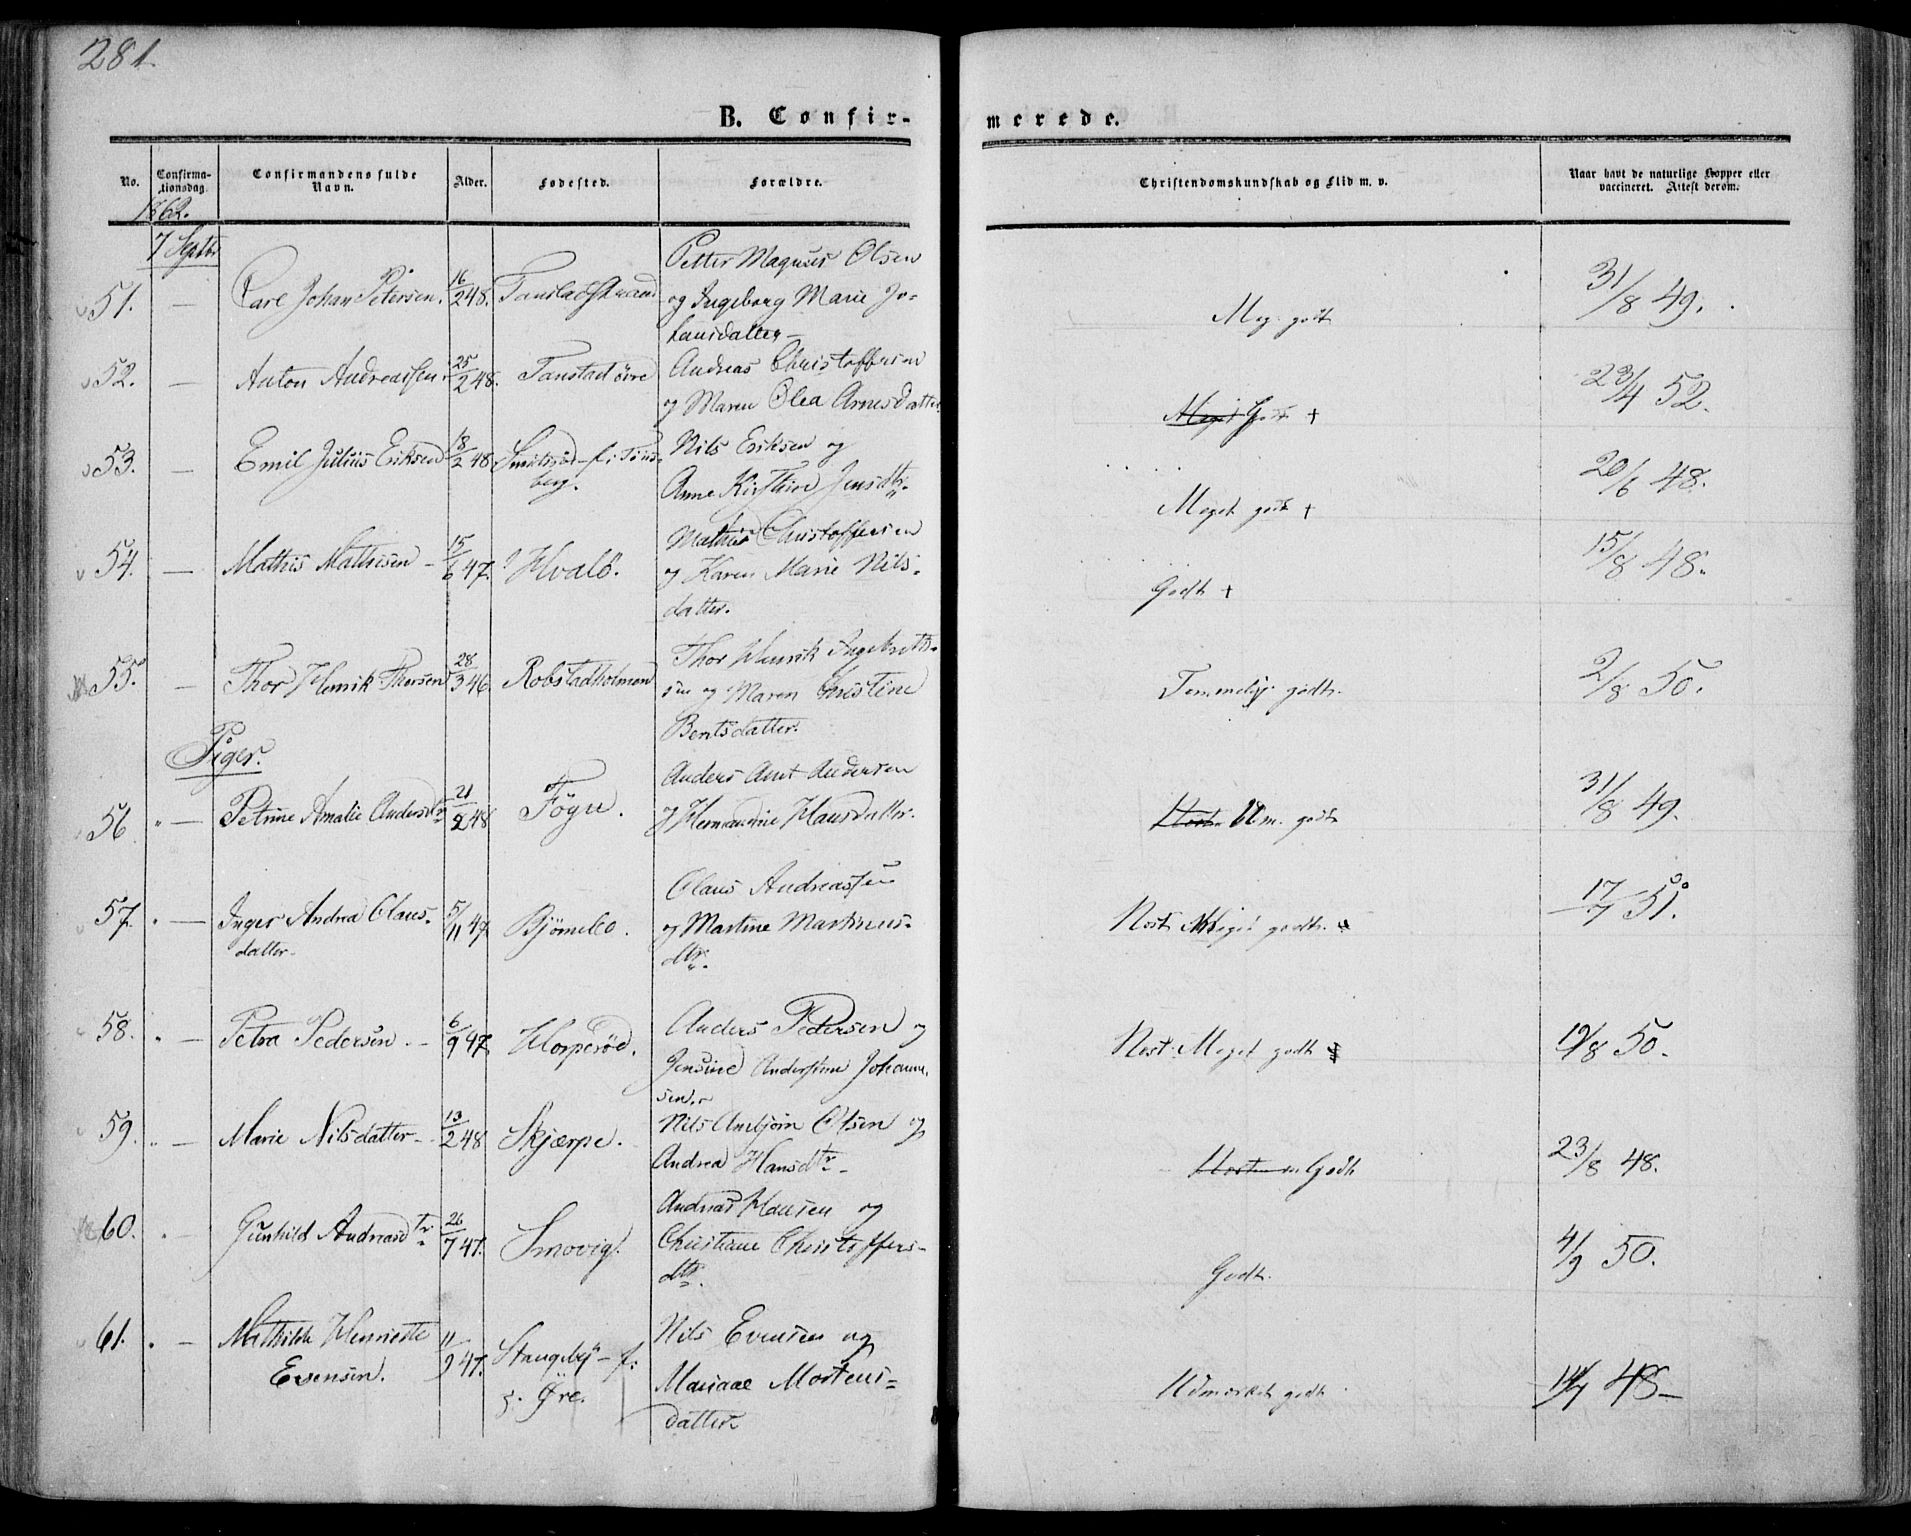 281.
B. Confirmerede.
No. Confirmationsdag. Confirmandens fulde Navn. Alder. Fødested. Forældre. Christendomskundskab og Flid m. v. Naar havt de naturlige Kopper eller vaccineret. Attest derom.
1862.
7 Septbr
51. — Carl Johan Petersen. 16/2 48. Petter Magnus Olsen og Ingeborg Marie Johansdatter — Meg. godt 31/8 49.
52. — Anton Andreassen. 25/2 48. Tanstad övre Andreas Christoffersen og Maren Olea Arnesdatter Meget Godt + 23/4 52.
53. — Emil Julius Eriksen 18/2 48. f. i Tönsberg. Nils Eriksen og Anne Kirstine Jensdtr. Meget godt + 20/6 48.
54. — Mathis Mathisen — 15/6 47. Hvalö. Mathis Christoffersen og Karen Marie Nilsdatter. Godt + 15/8 48.
55. — Thor Henrik Thorsen 28/3 46. Robstadholmen Thor Henrik Ingebretsen og Maren Christine Bentsdatter. Temmelig godt. 2/8 50.
Piger.
56 " — Petrine Amalie Andersdtr 21/2 48 Föyn. Anders Arnt Andersen og Hernandine Hansdatter. Um. godt 31/8 49.
57. " — Inger Andrea Clausdatter. 5/11 47 Björnebo. Claus Andreassen og Martine Martinusdtr. Nost. Meget godt. 17/7 51.
58. " — Petra Pedersen. — 6/9 47 Horperöd. Anders Pedersen og Jensine Andersine Johannsen. Nost. Meget godt 19/8 50.
59. " — Marie Nilsdatter — 13/2 48 Skjærpe. Nils Anbjörn Olsen og Andrea Hansdtr — Godt 23/8 48.
60. " — Gunhild Andreasdtr 26/7 47. Smovig. Andreas Hansen og Christiane Christoffersdtr. Godt. 4/9 50.
61. " — Mathilde Henriette Evensen. 11/9 47. Stangeby — f. Öre. Nils Evensen og Mortensdatter Udmærket godt 14/7 48 —